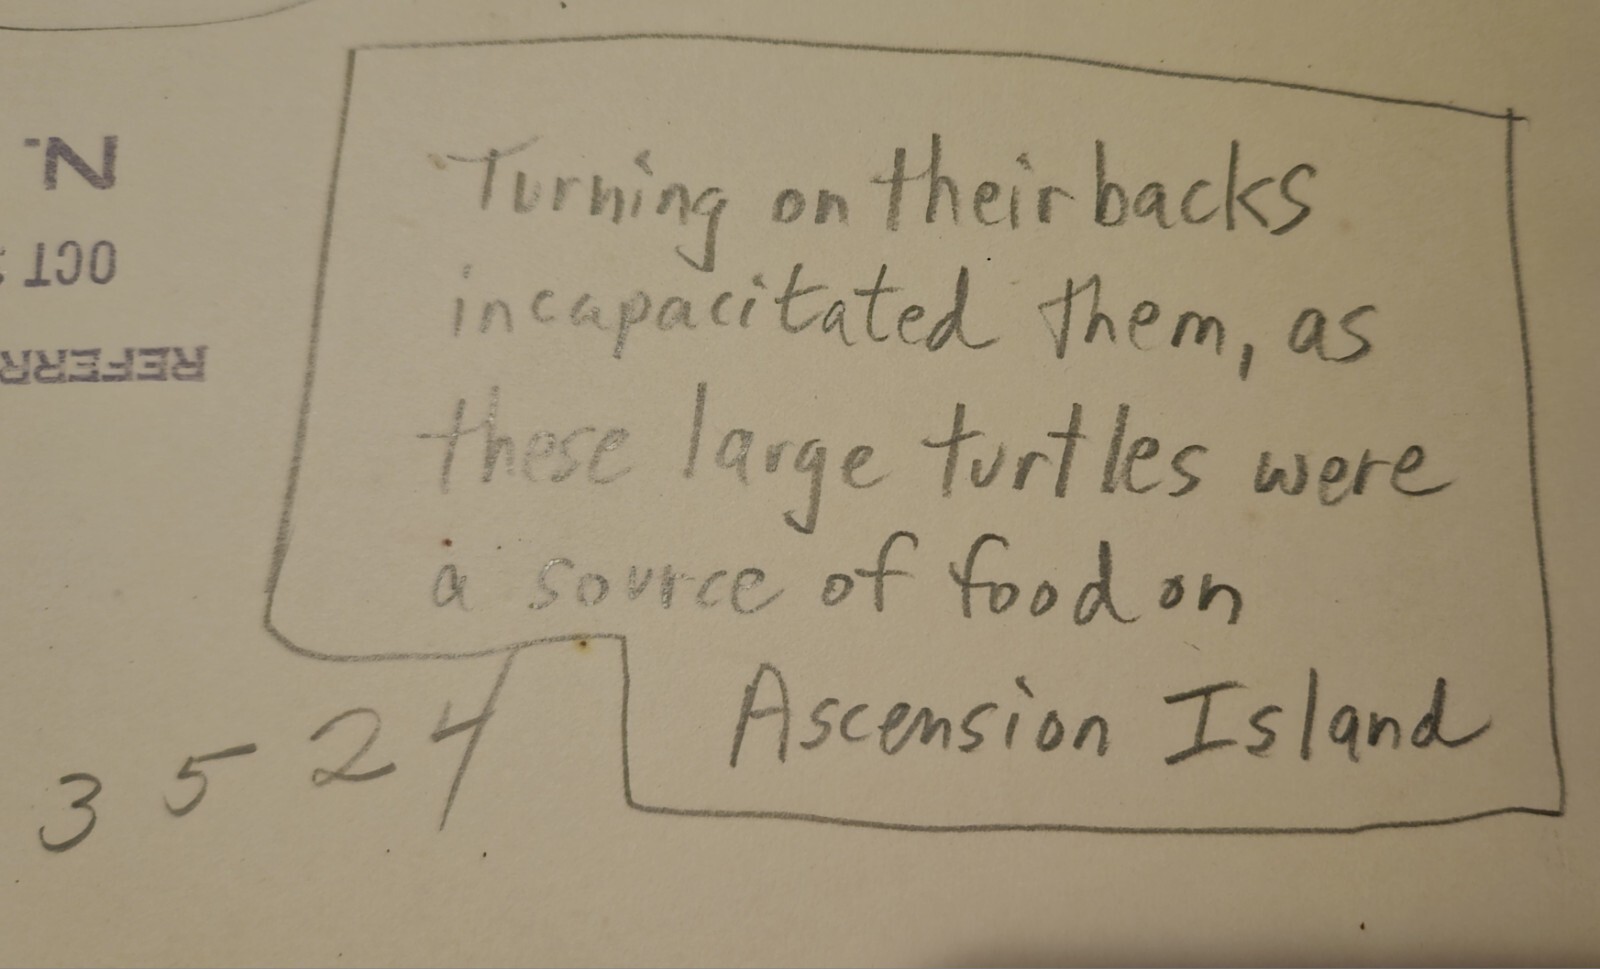 Turning on their backs
incapacitated them, as
these large turtles were
a source of food on
Ascension Island
3 5 2 4
N.
OCT
REFERR